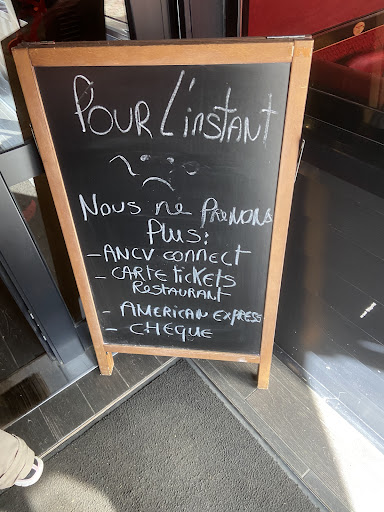 Pour L'instant
Nous ne Prenons
Plus:
- ANCV connect
- CARTE tickets
Restaurant
- AMERICAN EXPRESS
- CHEQUE